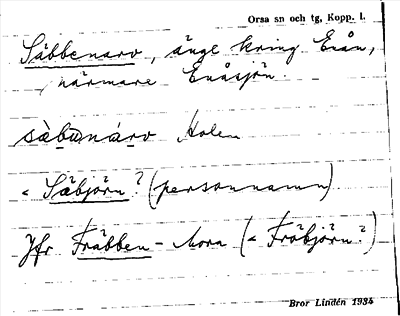 Orsa sn och tg, Kopp. l.
Säbbenarv, änge kring Enån,
närmare Enåsjön.
sàbunárv Holen
< Säbjörn? (personnamn)
Jfr Fräbben - Mora (< Fröbjörn?)
Bror Lindén 1934